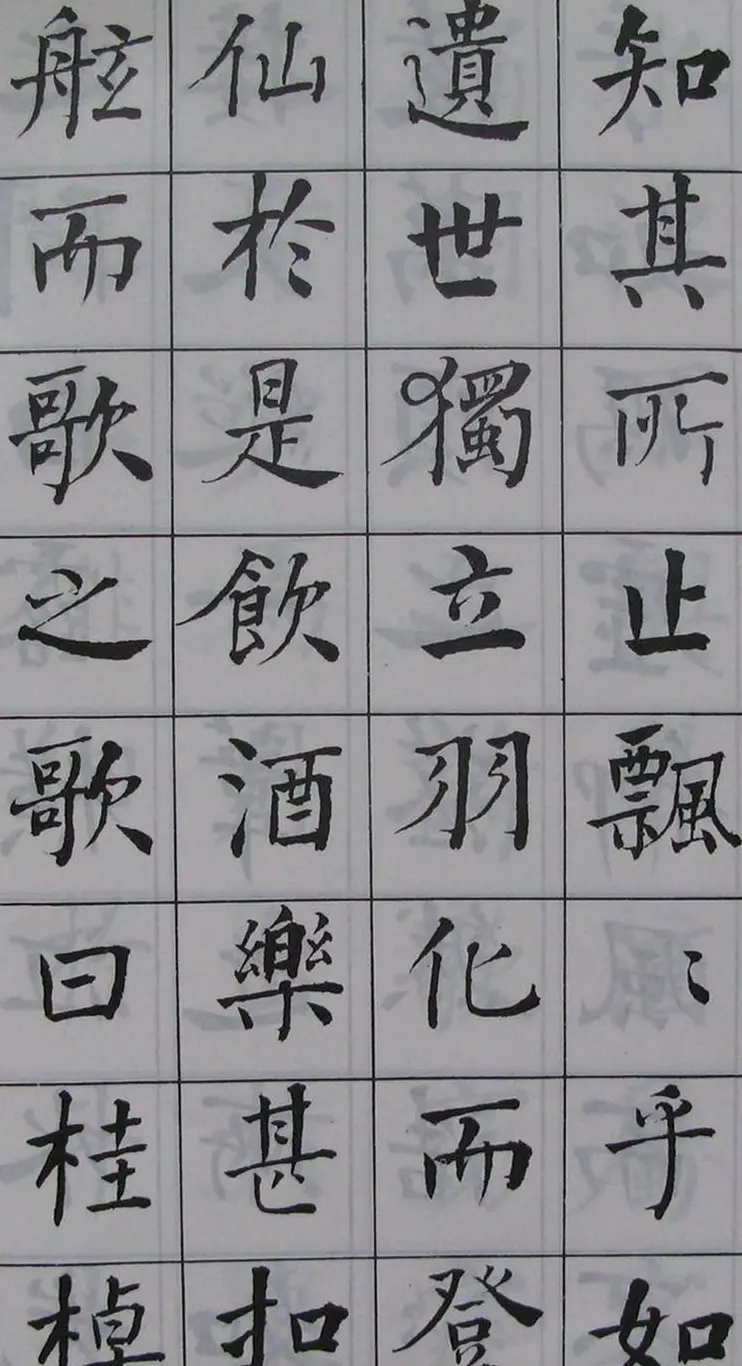 知其所止飄〻乎如
遺世獨立羽化而登
仙於是飲酒樂甚扣
舷而歌之歌曰桂棹